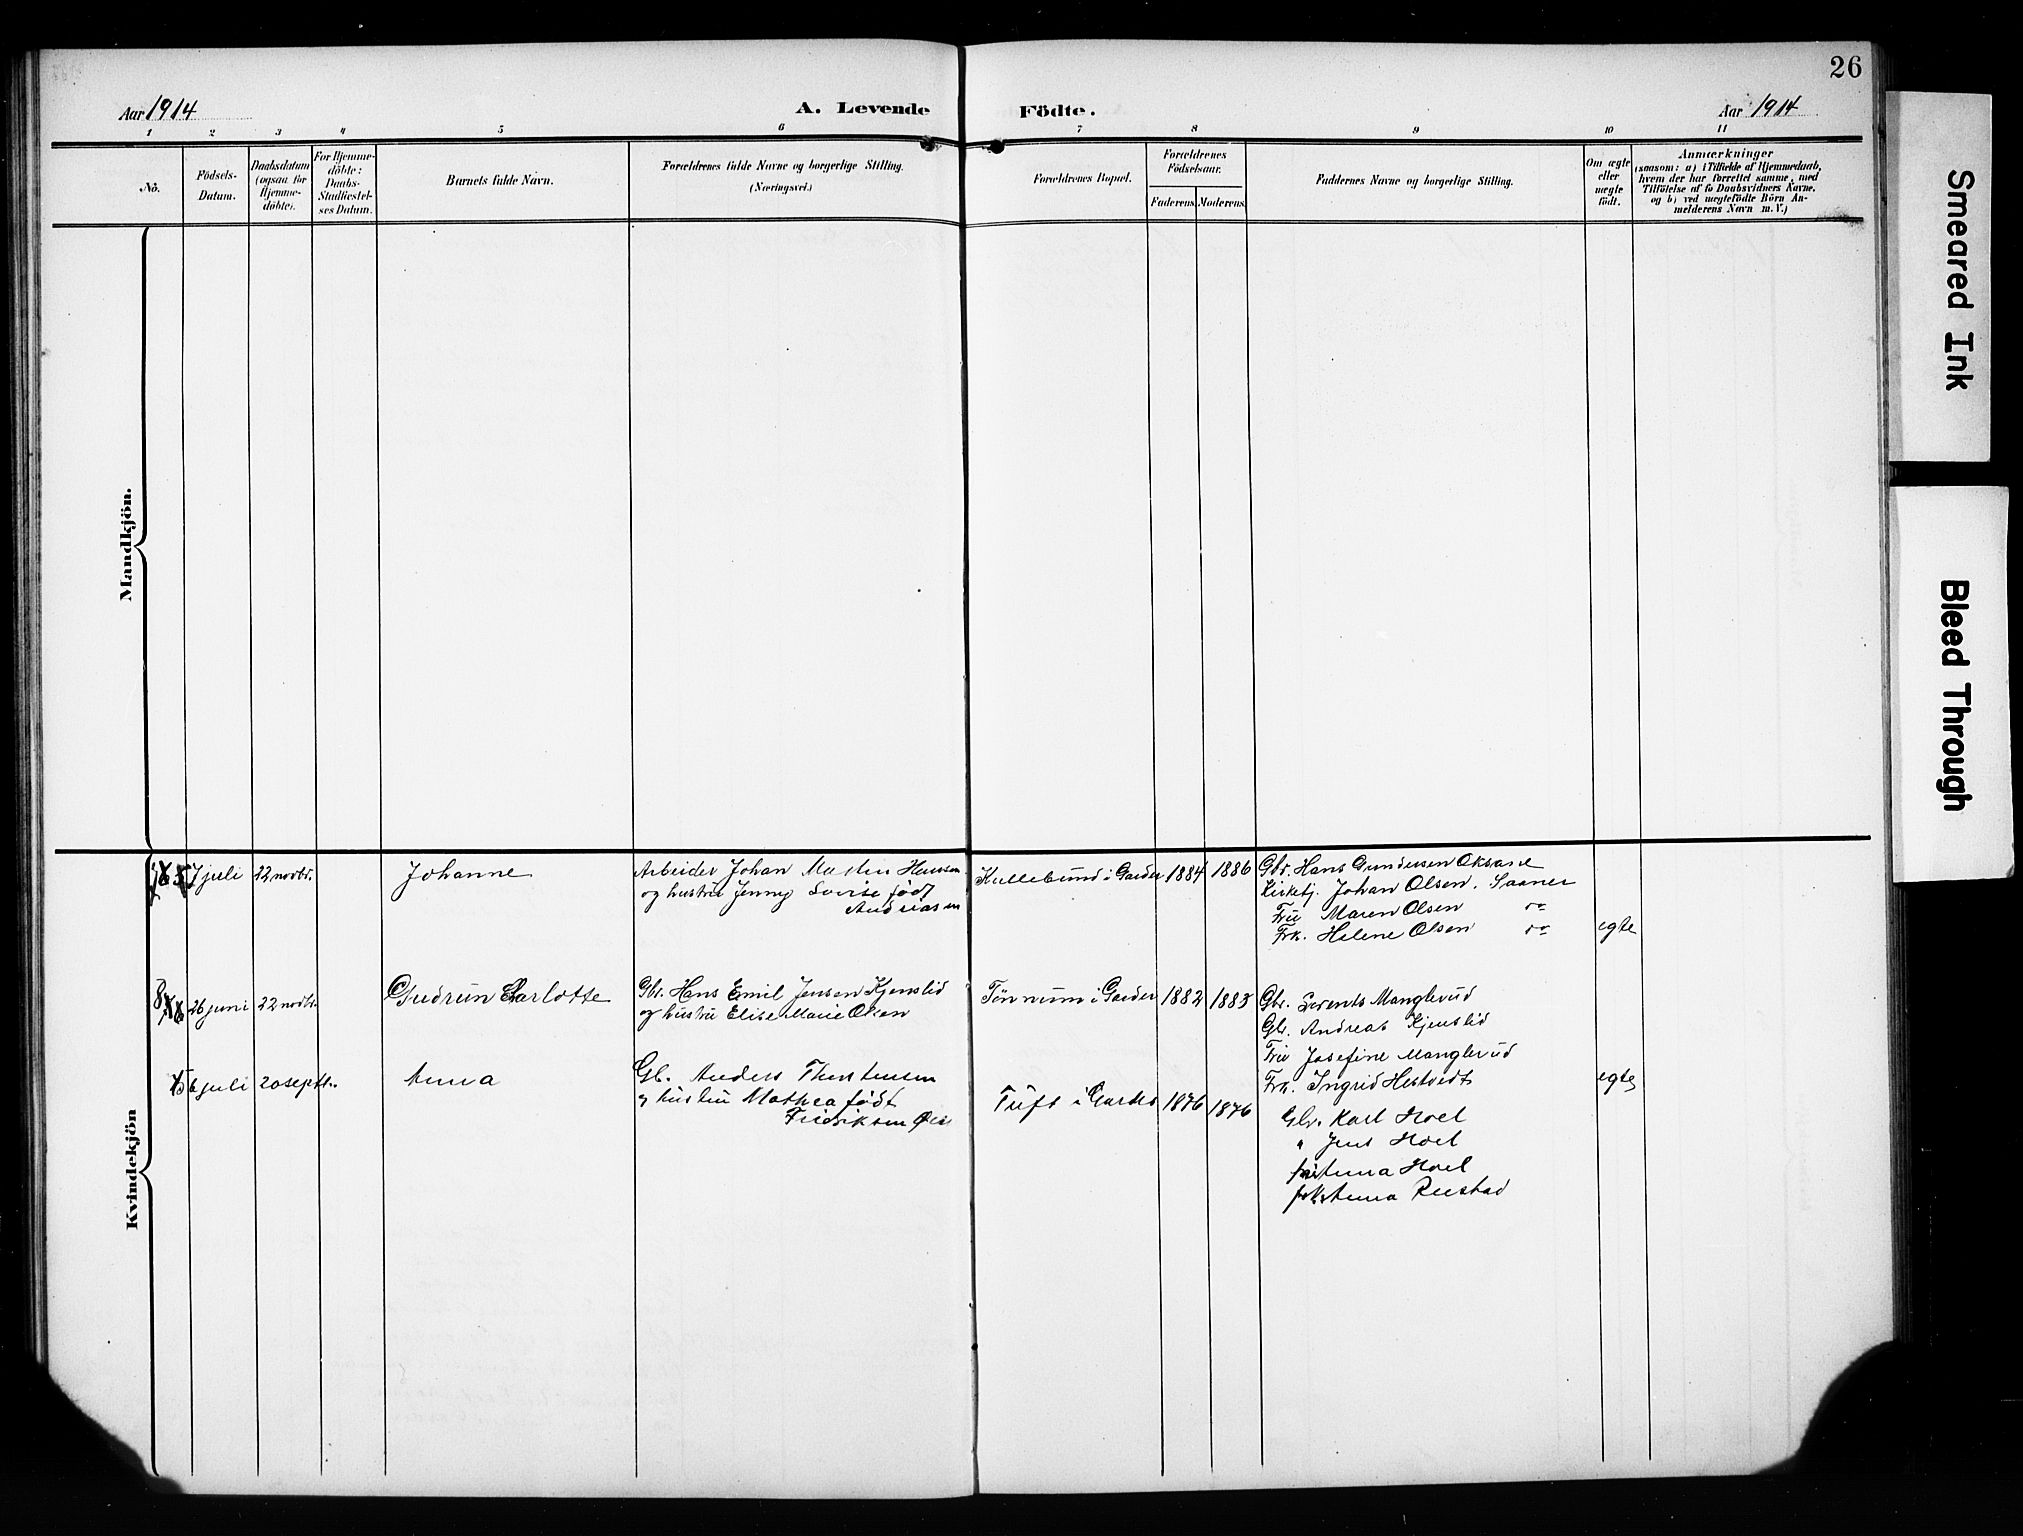 26
Aar 1914
A. Levende
Födte.
Aar 1914
1 2 3 4 5 6 7 8 9 10 11
No.
Födsels-
Datum.
Daabsdatum
(ogsaa for
Hjemme-
döbte).
For Hjemme-
döbte:
Daabs-
Stadfæstel-
ses Datum.
Barnets fulde Navn.
Forældrenes fulde Navne og borgerlige Stilling.
(Næringsvei.)
Forældrenes Bopæl.
Forældrenes
Födselsaar.
Faderens Moderens
Faddernes Navne og borgerlige Stilling.
Om ægte
eller
uægte
födt.
Anmærkninger
(saasom: a) i Tilfælde af Hjemmedaab,
hvem der har forrettet samme, med
Tilföielse af to Daabsvidners Navne,
og b) ved uægtefödte Börn An-
melderens Navn m. V.)
Mandkjön.
Kvindekjön
7 juli 22 novbr. Johanne
Arbeider Johan Martin Hansen
og hustru Jenny Lovise født
Andreasen
Kullebund i Garder 1884 1886
Gbr. Hans Gundersen Oksane
Kirketj. Johan Olsen. Saaner
Fru Maren Olsen do
Frk. Helene Olsen do
egte
8 26 juni 22 novbr. Gudrun Charlotte
Gbr. Hans Emil Jensen Kjenslid
og hustru Elise Marie Olsen
Tønnum i Garder 1882 1883
Gbr. Lorents Manglerud
Gbr. Andreas Kjenslid
Fru Josefine Manglerud
Frk. Ingrid Hestvedt
egte
6 juli 20 septbr. Anna
Gb. Anders Thorstensen
og hustru Mathea født
Fredriksen
Tuft i Garder 1876 1876
Gbr. Karl Hoel
" Jens Hoel
fru Anna Hoel
frk. Anna Rustad
Smeared Ink
Bleed Through